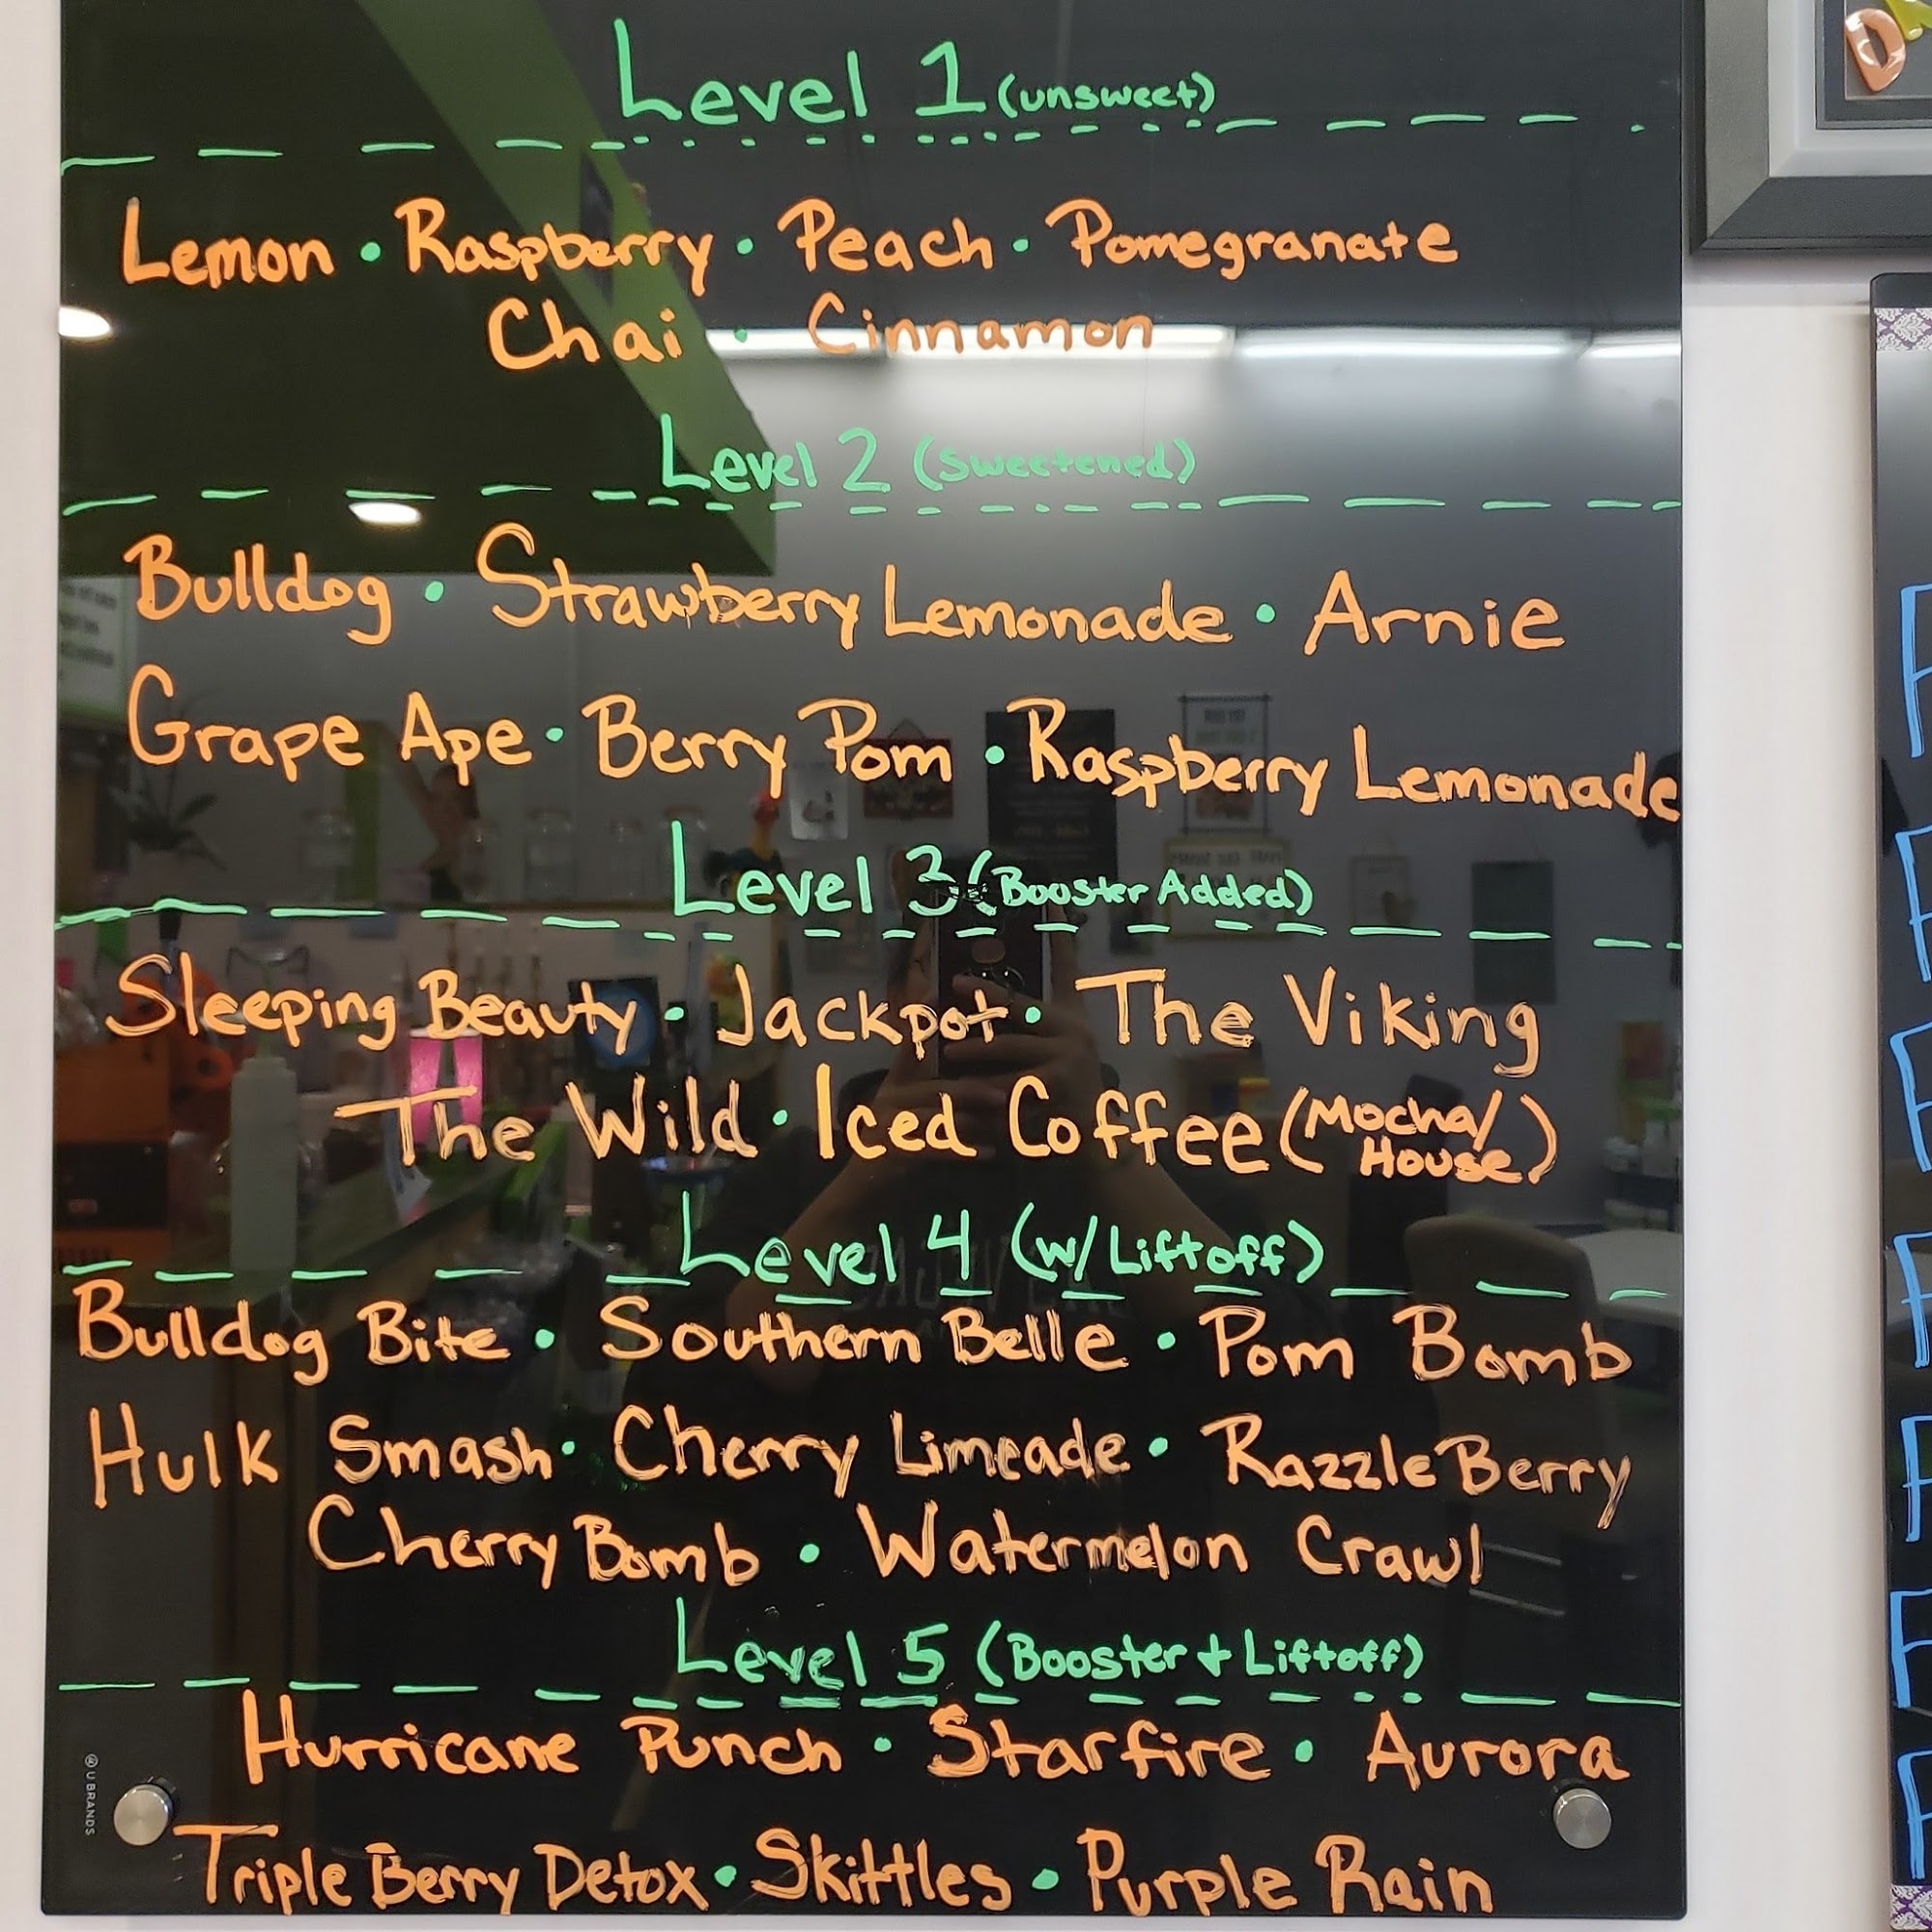 Level 1 (unsweet)
Lemon • Raspberry • Peach • Pomegranate
Chai • Cinnamon
Level 2 (sweetened)
Bulldog • Strawberry Lemonade • Arnie
Grape Ape • Berry Pom • Raspberry Lemonade
Level 3 (Booster Added)
Sleeping Beauty • Jackpot • The Viking
The Wild • Iced Coffee (Mocha/
House)
Level 4 (w/ Liftoff)
Bulldog Bite • Southern Belle • Pom Bomb
Hulk Smash • Cherry Limeade • Razzle Berry
Cherry Bomb • Watermelon Crawl
Level 5 (Booster + Liftoff)
Hurricane Punch • Starfire • Aurora
Triple Berry Detox • Skittles • Purple Rain
U BRANDS